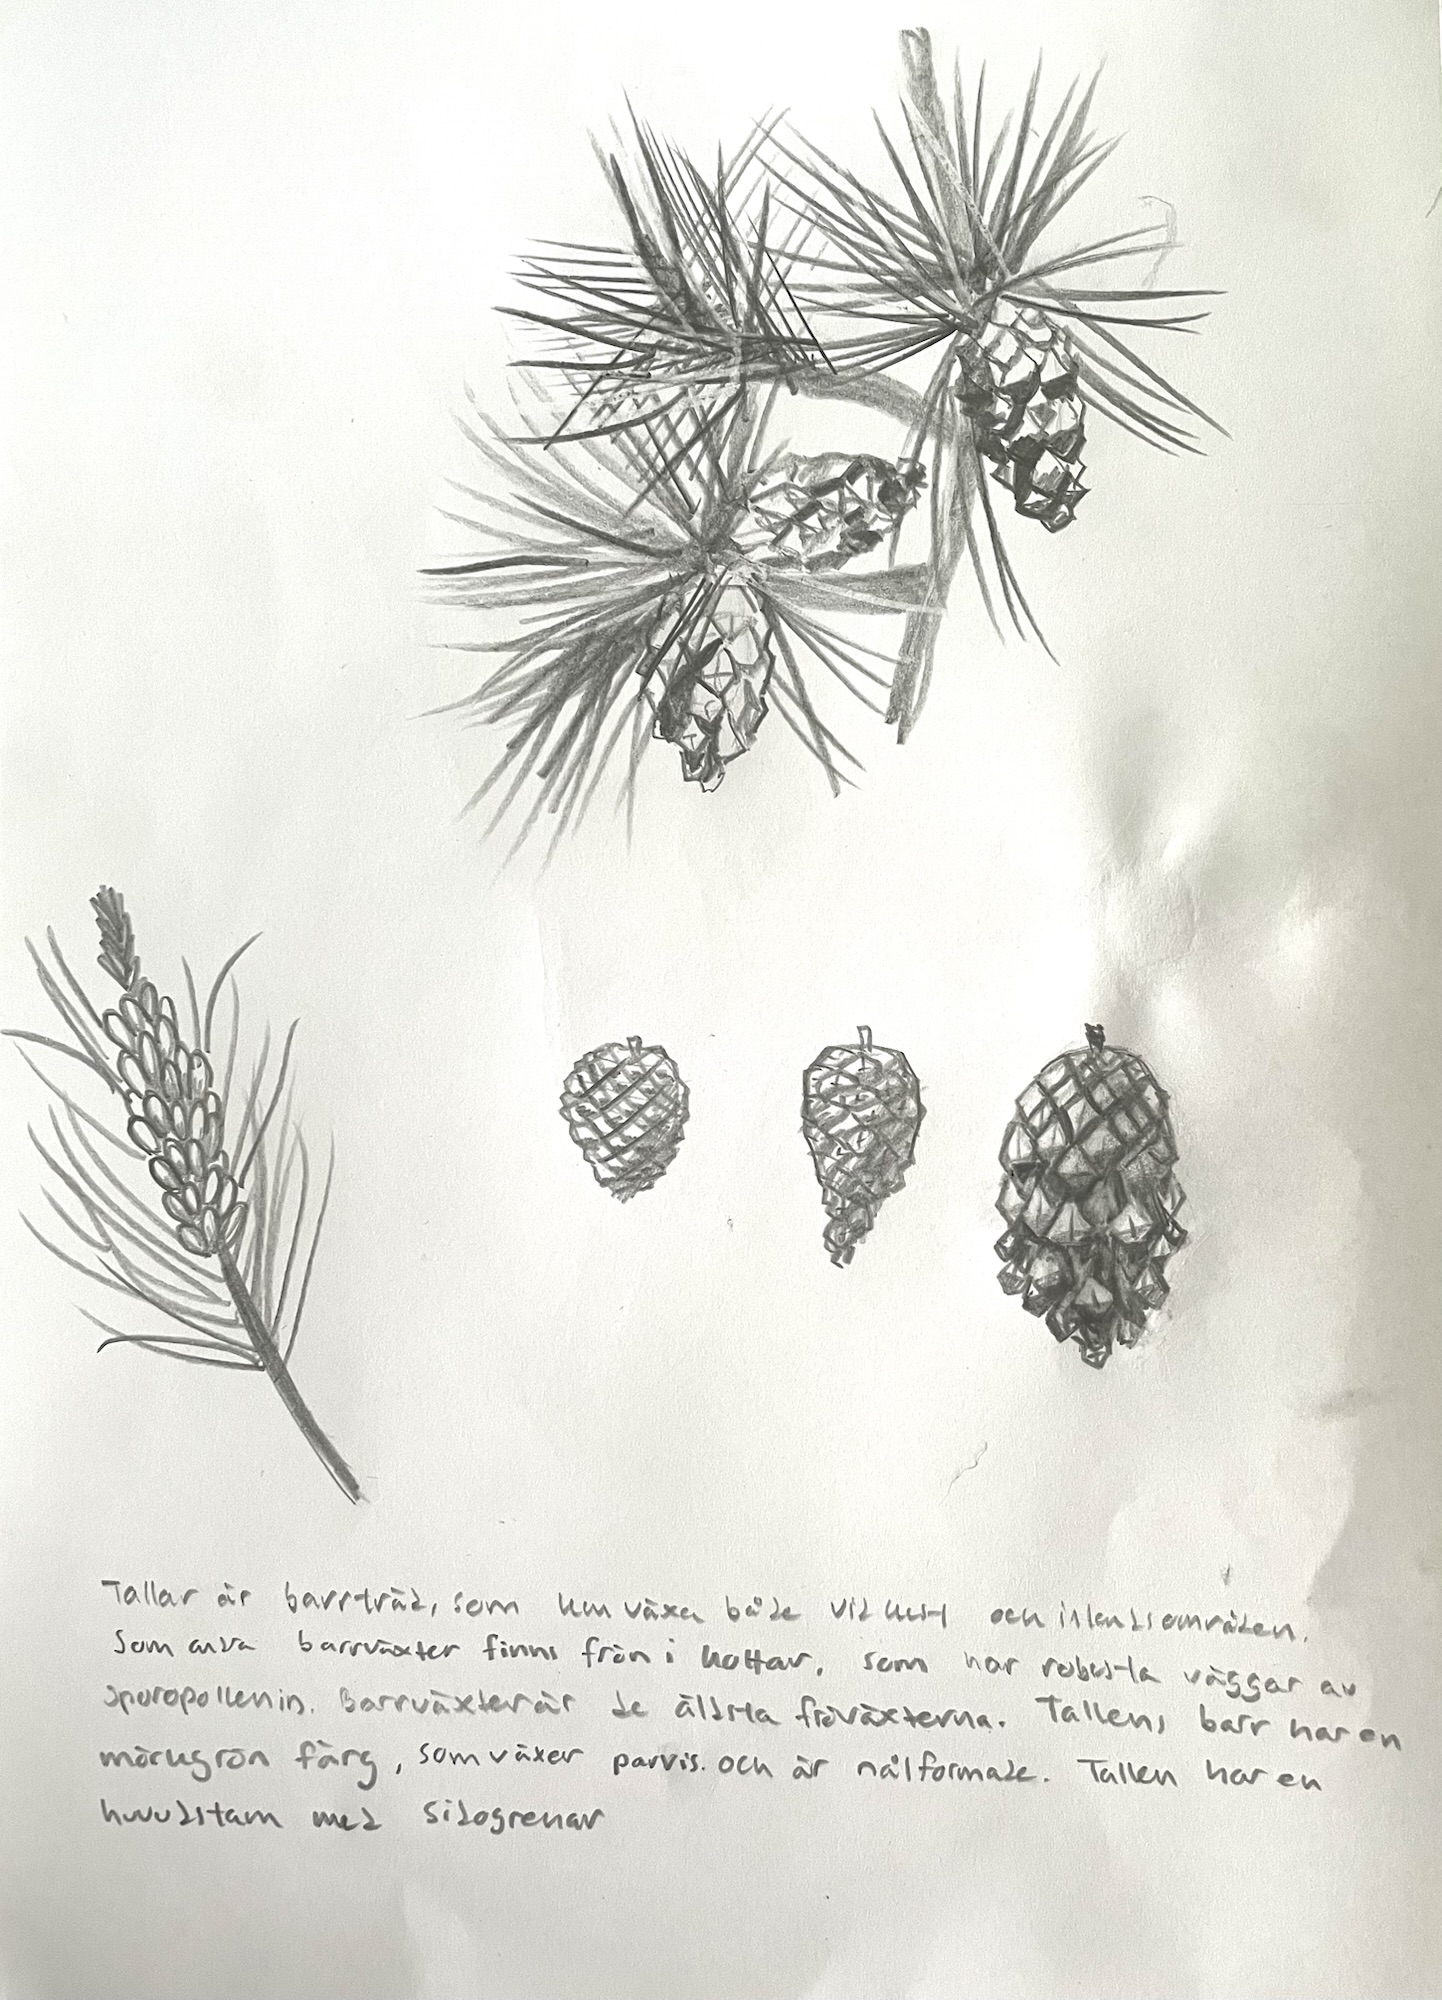 Tallar är barrträd, som kan växa både vid kust och inlandsområden.
Som andra barrväxter finns frön i kottar, som har robusta väggar av
sporopollenin. Barrväxter är de äldsta fröväxterna. Tallens barr har en
mörkgrön färg, som växer parvis. och är nålformade. Tallen har en
huvudstam med sidogrenar